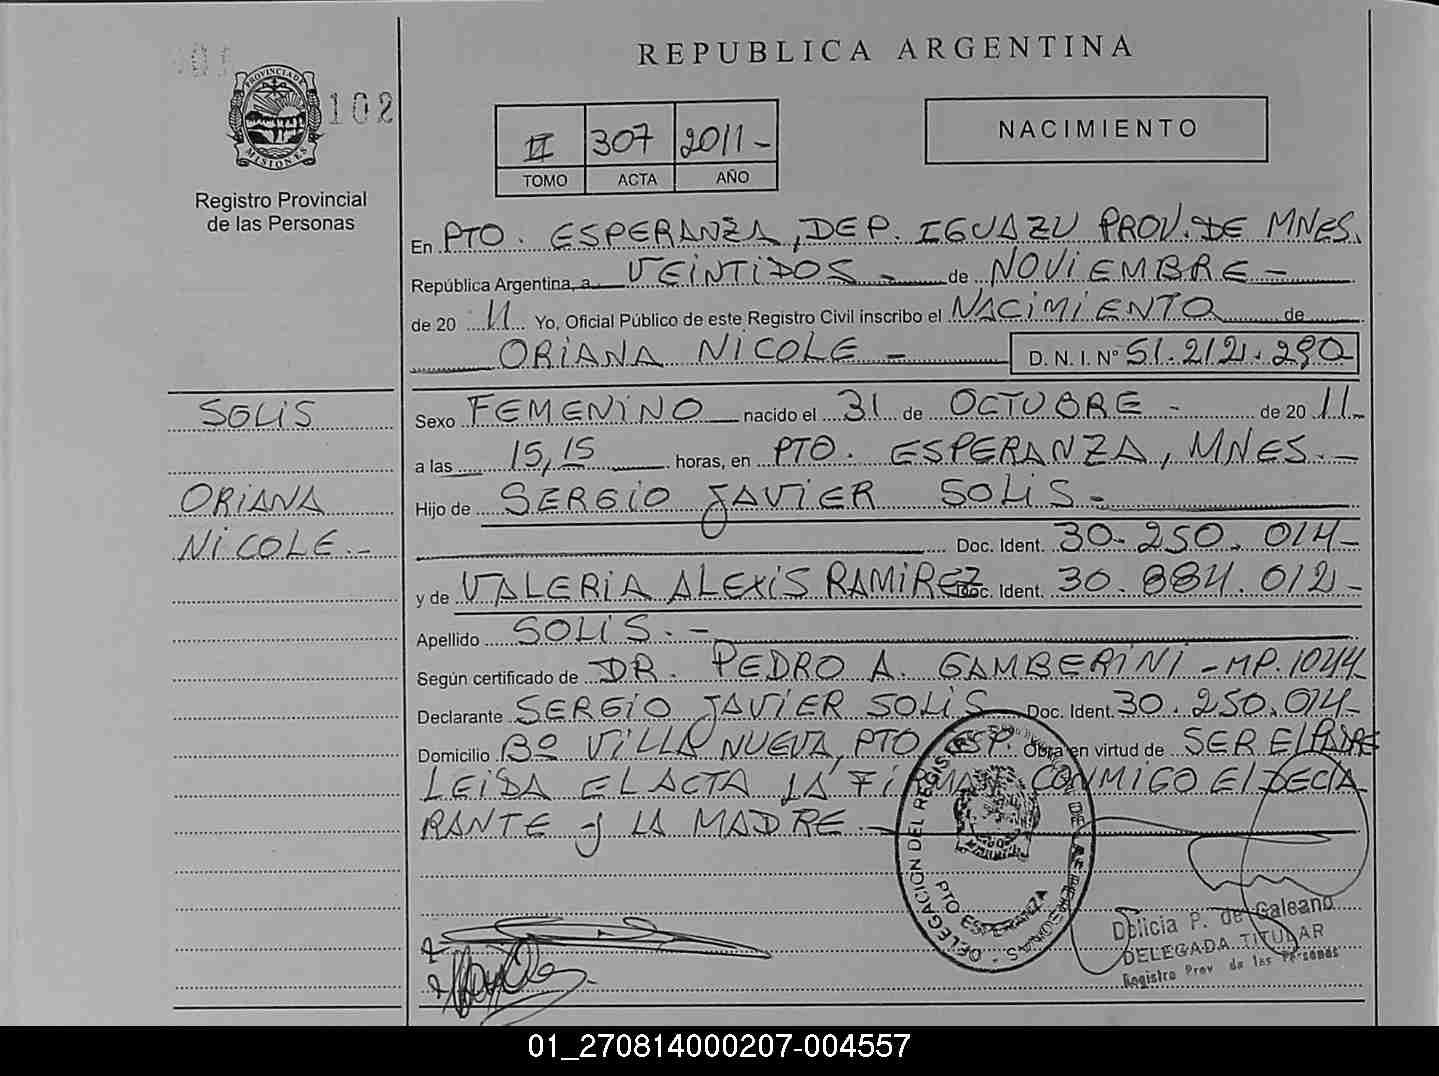 REPUBLICA ARGENTINA
102
PROVINCIA DE
MISIONES
Registro Provincial
de las Personas
II 307 2011-
TOMO ACTA AÑO
NACIMIENTO
En PTO. ESPERANZA, DEP. IGUAZU PROV. DE MNES.
República Argentina, a VEINTIDOS - de NOVIEMBRE -
de 20 11 Yo, Oficial Público de este Registro Civil inscribo el NACIMIENTO de
ORIANA NICOLE - D. N. I. Nº 51.212.290
SOLIS
ORIANA
NICOLE.-
Sexo FEMENINO nacido el 31 de OCTUBRE - de 20 11-
a las 15,15 horas, en PTO. ESPERANZA, MNES.-
Hijo de SERGIO JAVIER SOLIS-
Doc. Ident. 30.250.014-
y de VALERIA ALEXIS RAMIREZ Doc. Ident. 30.884.012-
Apellido SOLIS.-
Según certificado de DR. PEDRO A. GAMBERINI - MP.1044
Declarante SERGIO JAVIER SOLIS Doc. Ident. 30.250.014-
Domicilio Bº VILLA NUEVA, PTO ESP. Obra en virtud de SER EL PADRE
LEIDA EL ACTA LA FIRMAN CONMIGO El DECLA
RANTE y LA MADRE.-
DELEGACIÓN DEL REGISTRO
DE LAS PERSONAS
PTO ESPERANZA
Delicia P. de Galeano
DELEGADA TITULAR
Registro Prov de las Personas
01_270814000207-004557